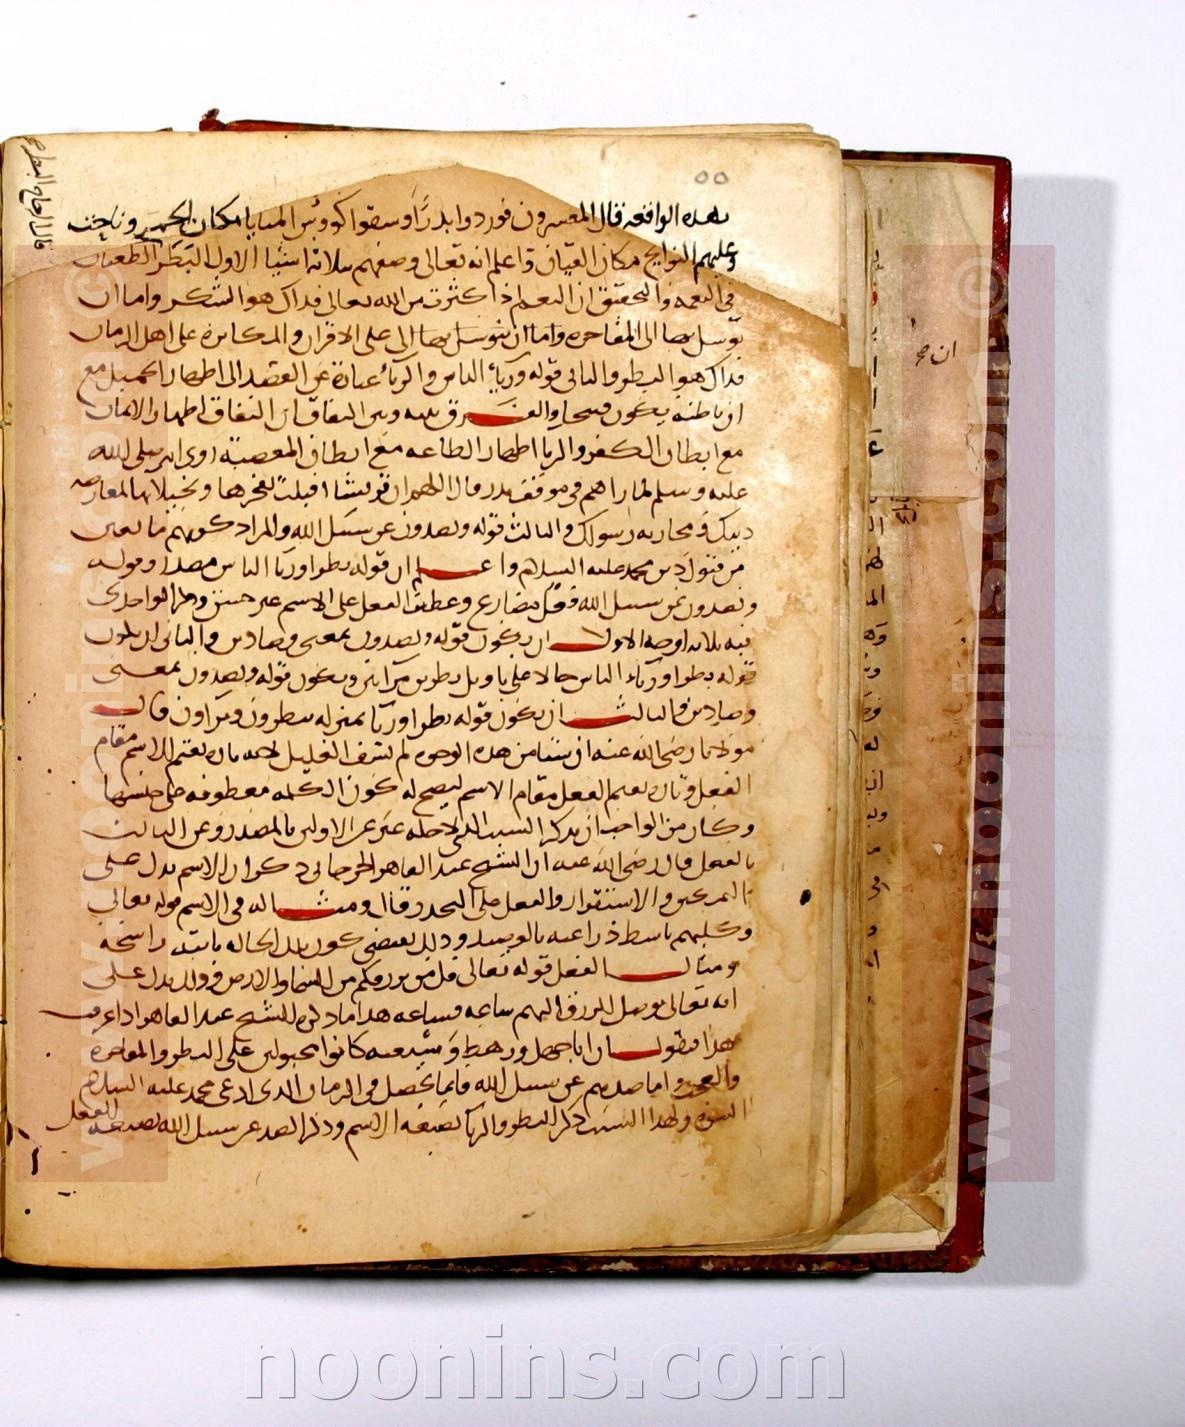 ٥٥
بهذه الواقعه قال المفسرون فوردوا بدرًا وسقوا كؤوس المنايا مكان الخمر وناحت
وعليهم النوايح مكان القيان واعلم انه تعالى وصفهم بثلاثة اشيا الاول البطر الطغيان
في النعمه والتحقيق ان النعم اذا كثرت من الله تعالى فذاك هو الشكر واما ان
توسل بها الى المفاخره واما ان يتوسل بها الى على الاقران والمكاثرة على اهل الزمان
فذاك هو البطر والثانى قوله ورئا الناس والرياء عبارة عن القصد الى اظهار الجميل مع
ان باطنه يكون قبيحا والفرق بينه وبين النفاق ان النفاق اظهار الايمان
مع ابطان الكفر والريا اظهار الطاعه مع ابطان المعصية روى انه صلى الله
عليه وسلم لما راهم في موقف بدر قال اللهم ان قريشا اقبلت بفخرها وخيلائها لمعارضه
دينك ومحاربه رسولك والثالث قوله ويصدون عن سبيل الله والمراد كونهم مانعين
من قبول دين محمد عليه السلام واعلم ان قوله بطرا وريا الناس مصدر وقوله
ويصدون عن سبيل الله فعل مضارع وعطف الفعل على الاسم غير حسن وذكر الواحدى
فيه ثلاثه اوجه الاول ان يكون قوله ويصدون بمعنى وصادين والثانى ان يكون
قوله بطرا ورئاء الناس حالا على تاويل بطرين مرائين ويكون قوله ويصدون بمعنى
وصادين والثالث ان يكون قوله بطرا وريا بمنزله يبطرون ويراون قال
مولانا رضي الله عنه ان شيا من هذه الوجوه لم يشف الغليل لانه تاره يقيم الاسم مقام
الفعل وتاره يقيم الفعل مقام الاسم ليصح له كون الكلمه معطوفه على جنسها
وكان من الواجب ان يذكر السبب الذي لاجله عبر عن الاولين بالمصدر وعن الثالث
بالفعل قال رضي الله عنه ان الشيخ عبد القاهر الجرجانى ذكر ان الاسم يدل على
التمكين والاستقرار والفعل على التجدد قال ومثاله في الاسم قوله تعالى
وكلبهم باسط ذراعيه بالوصيد وذلك يقتضى كون تلك الحاله ثابته راسخه
ومثال الفعل قوله تعالى قل من يرزقكم من السما والارض وذلك يدل على
انه تعالى يوصل الرزق اليهم ساعه فساعه هذا ما ذكره الشيخ عبد القاهر اذا عرفت
هذا فنقول ان ابا جهل ورهطه وشيعته كانوا مجبولين على البطر والمفاخره
والعجب واما صدهم عن سبيل الله فانما حصل في الزمان الذى ادعى محمد عليه السلام
النبوه ولهذا السبب ذكر البطر والريا بصيغه الاسم وذكر الصد عن سبيل الله بصيغه الفعل
ان صح
www.noonins.com ©
www.noonins.com ©
noonins.com